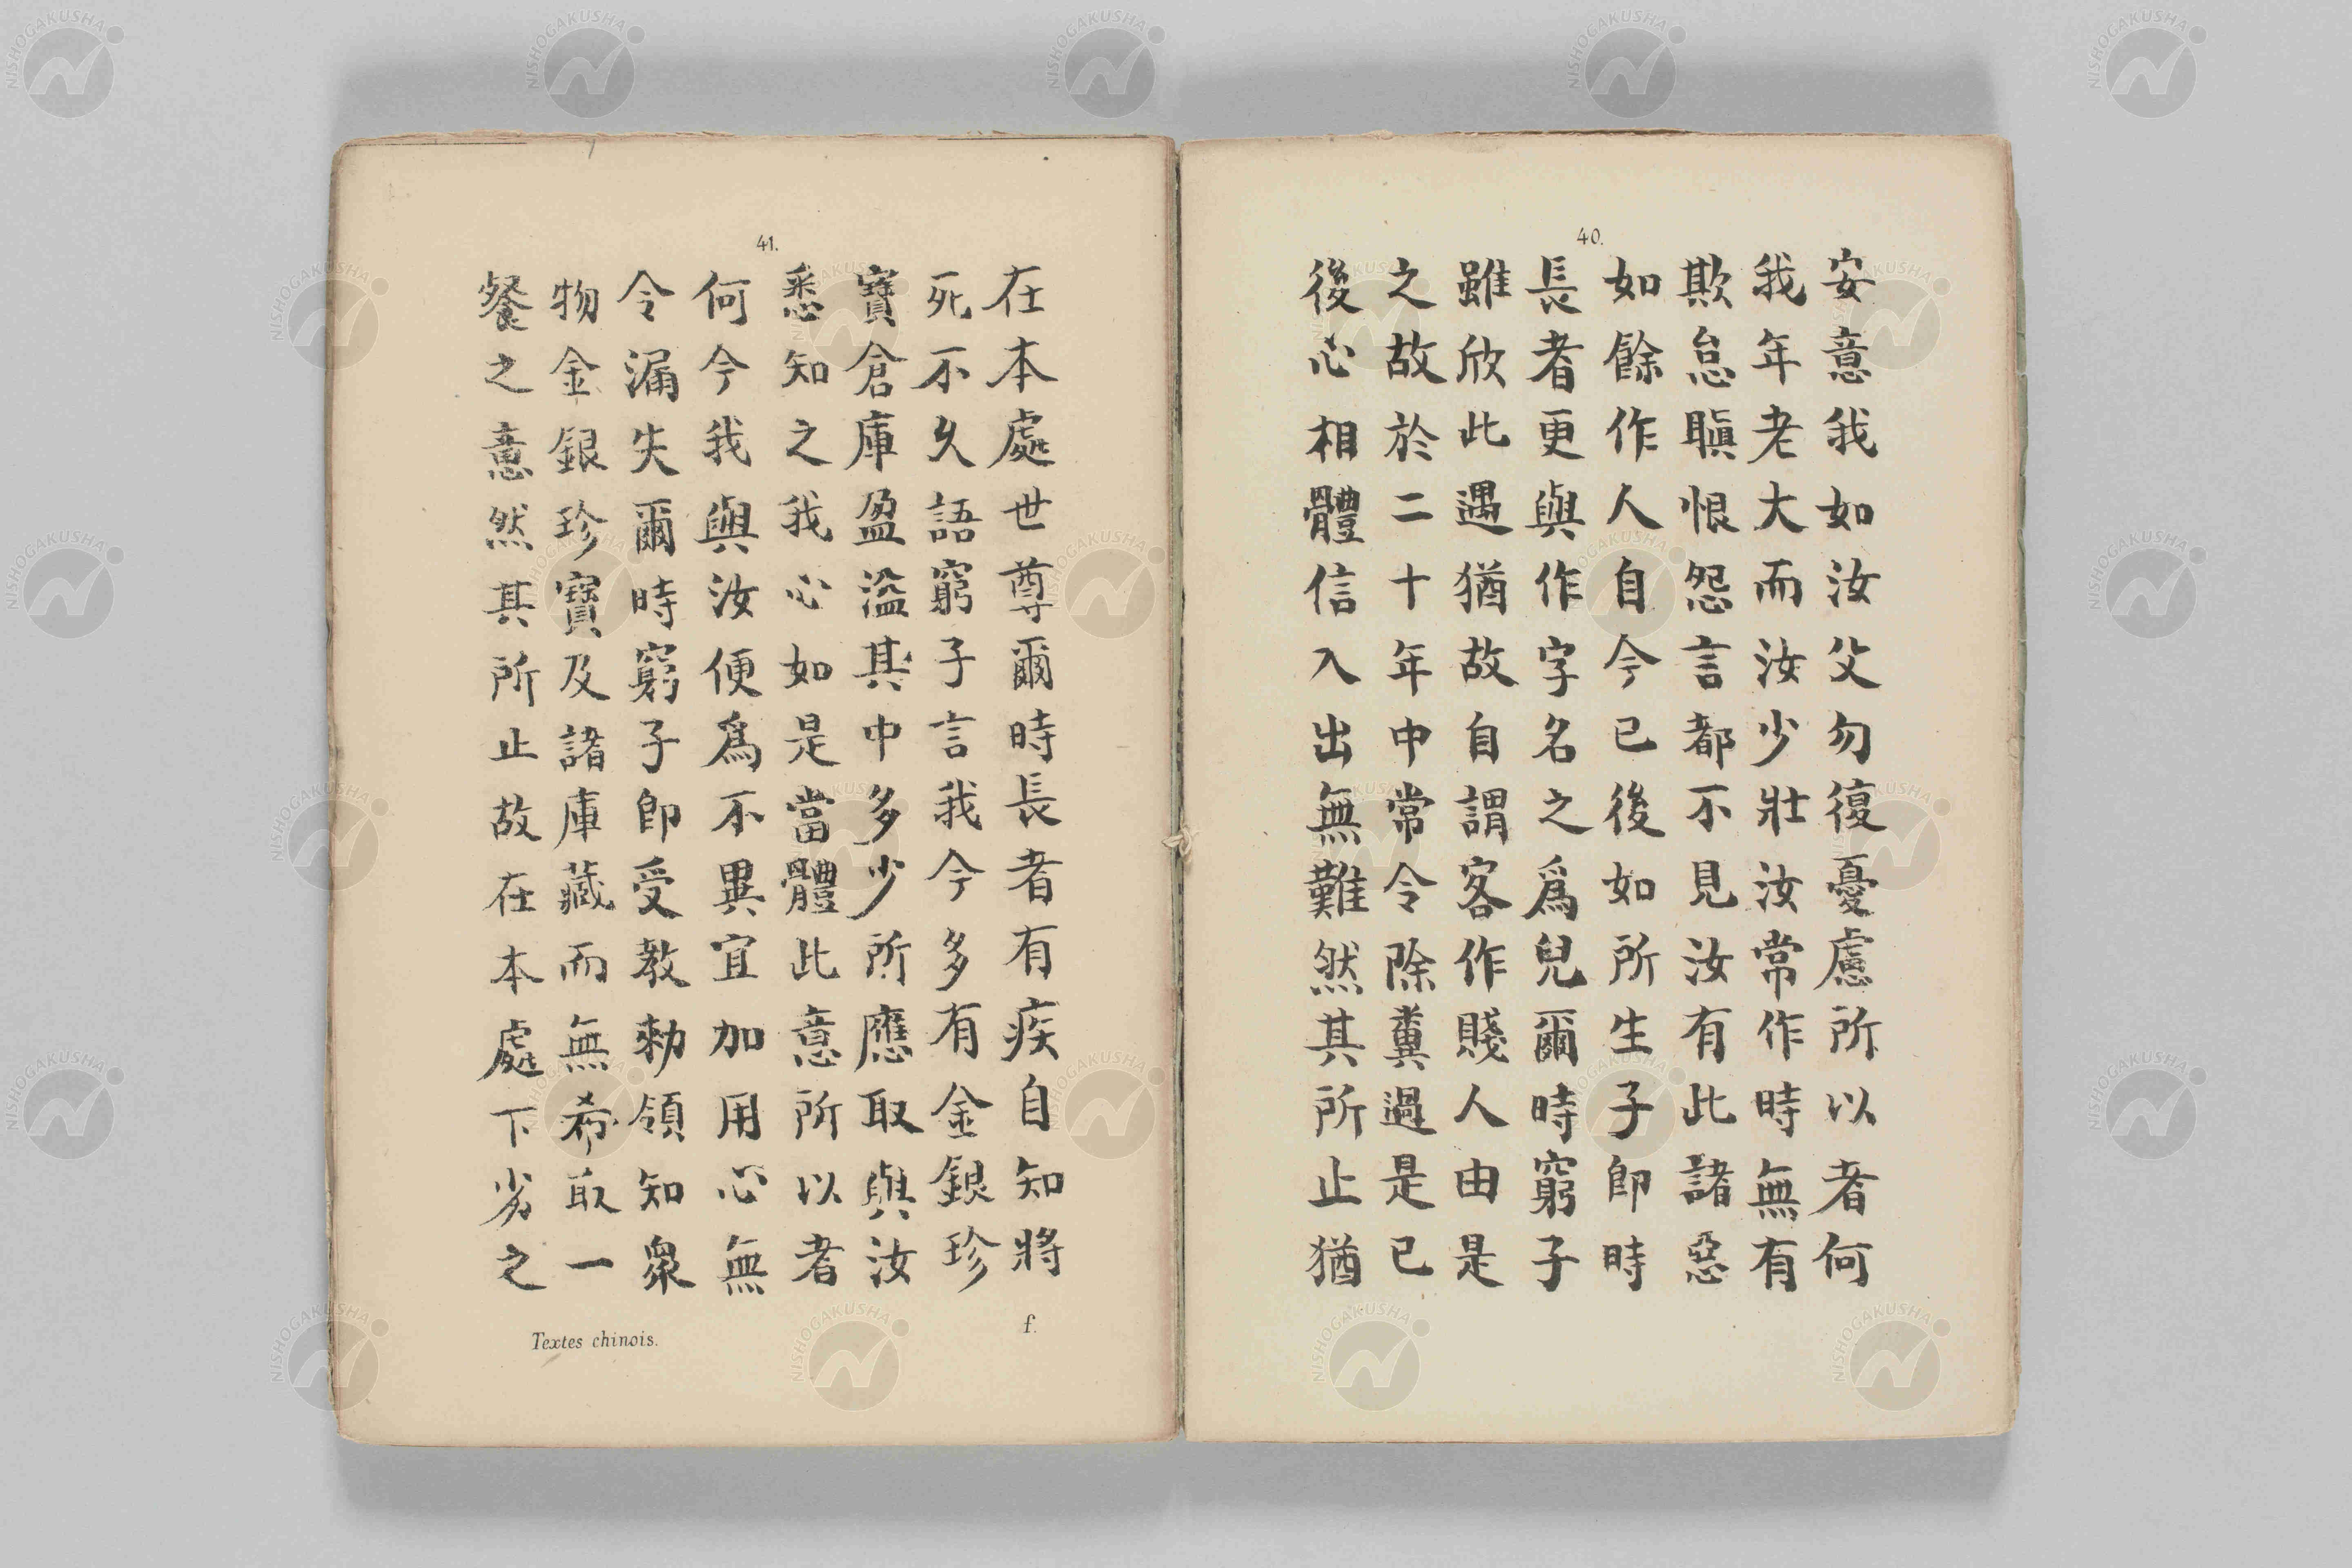 40.
安意我如汝父勿復憂慮所以者何
我年老大而汝少壯汝常作時無有
欺怠瞋恨怨言都不見汝有此諸惡
如餘作人自今已後如所生子即時
長者更與作字名之爲兒爾時窮子
雖欣此遇猶故自謂客作賤人由是
之故於二十年中常令除糞過是已
後心相體信入出無難然其所止猶
41.
在本處世尊爾時長者有疾自知將
死不久語窮子言我今多有金銀珍
寶倉庫盈溢其中多少所應取與汝
悉知之我心如是當體此意所以者
何今我與汝便爲不異宜加用心無
令漏失爾時窮子即受教勅領知衆
物金銀珍寶及諸庫藏而無希取一
餐之意然其所止故在本處下劣之
f.
Textes chinois.
NISHOGAKUSHA